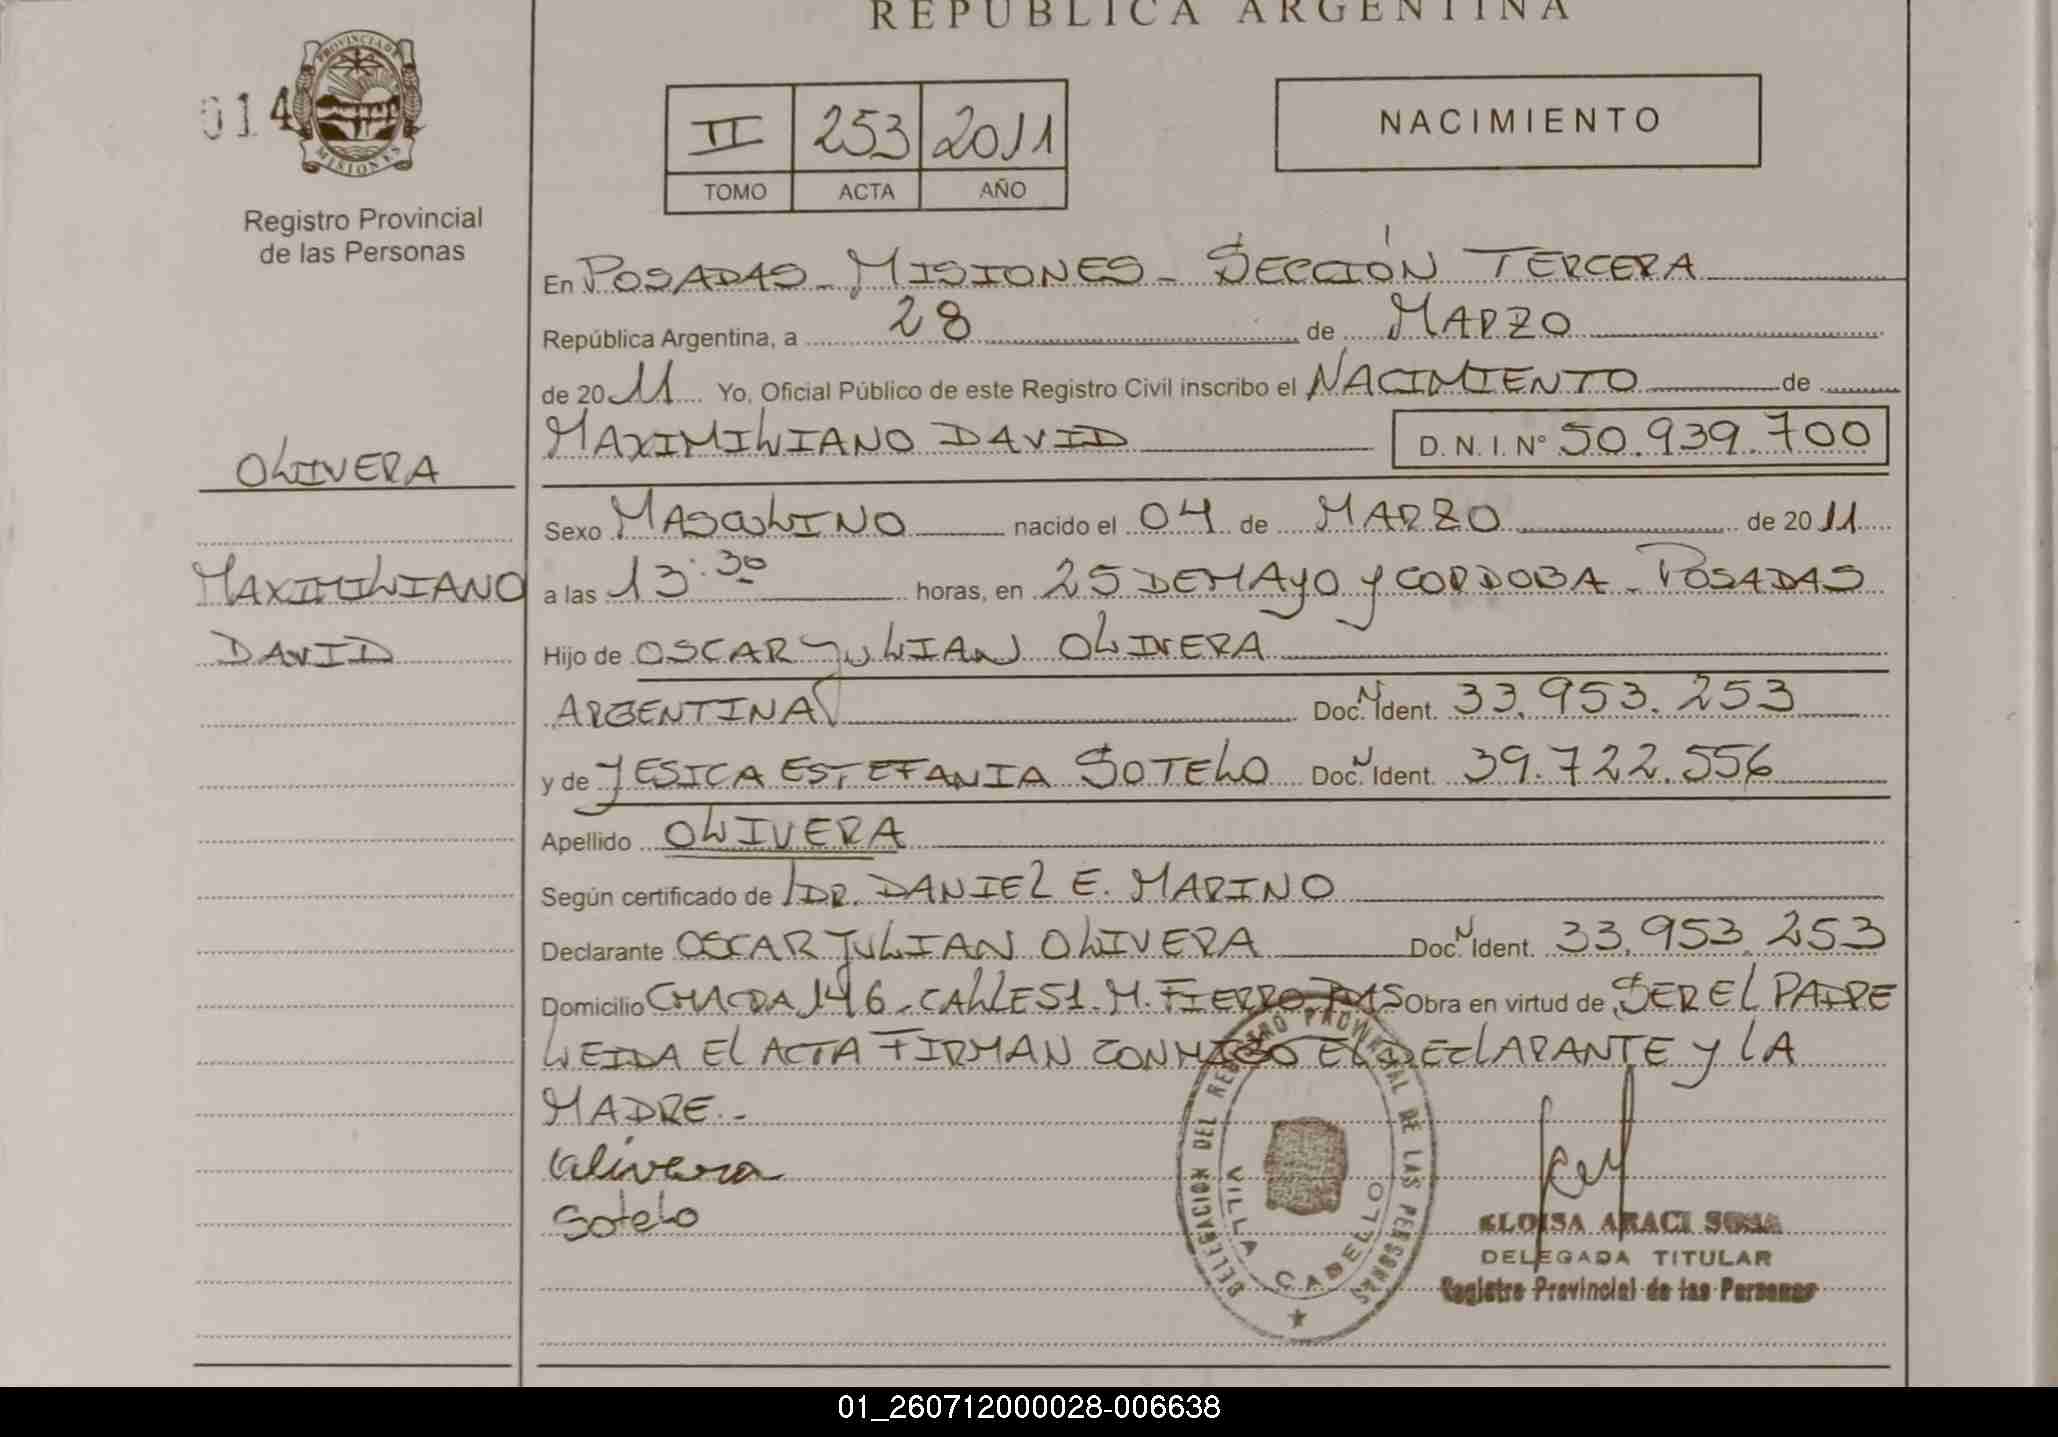 REPUBLICA ARGENTINA
014
PROVINCIA DE
MISIONES
Registro Provincial
de las Personas
II 253 2011
TOMO ACTA AÑO
NACIMIENTO
En POSADAS - MISIONES - SECCIÓN TERCERA
República Argentina, a 28 de MARZO
de 2011 Yo, Oficial Público de este Registro Civil inscribo el NACIMIENTO de
MAXIMILIANO DAVID D. N. I. Nº 50.939.700
OLIVERA
MAXIMILIANO
DAVID
Sexo MASCULINO nacido el 04 de MARZO de 2011
a las 13:30 horas, en 25 DE MAYO y CORDOBA - POSADAS
Hijo de OSCAR JULIAN OLIVERA
ARGENTINA Doc. N Ident. 33.953.253
y de YESICA ESTEFANIA SOTELO Doc. N Ident. 39.722.556
Apellido OLIVERA
Según certificado de DR. DANIEL E. MARINO
Declarante OSCAR JULIAN OLIVERA Doc. N Ident. 33.953.253
Domicilio CHACRA 146 - CALLE 51 - M. FIERRO PDAS Obra en virtud de SER EL PADRE
LEIDA El ACTA FIRMAN CONMIGO EL DECLARANTE y LA
MADRE.-
Olivera
Sotelo
DELEGACION DEL REGISTRO PROVINCIAL DE LAS PERSONAS
VILLA CABELLO
ELOISA ARACI SOSA
DELEGADA TITULAR
Registro Provincial de las Personas
01_260712000028-006638